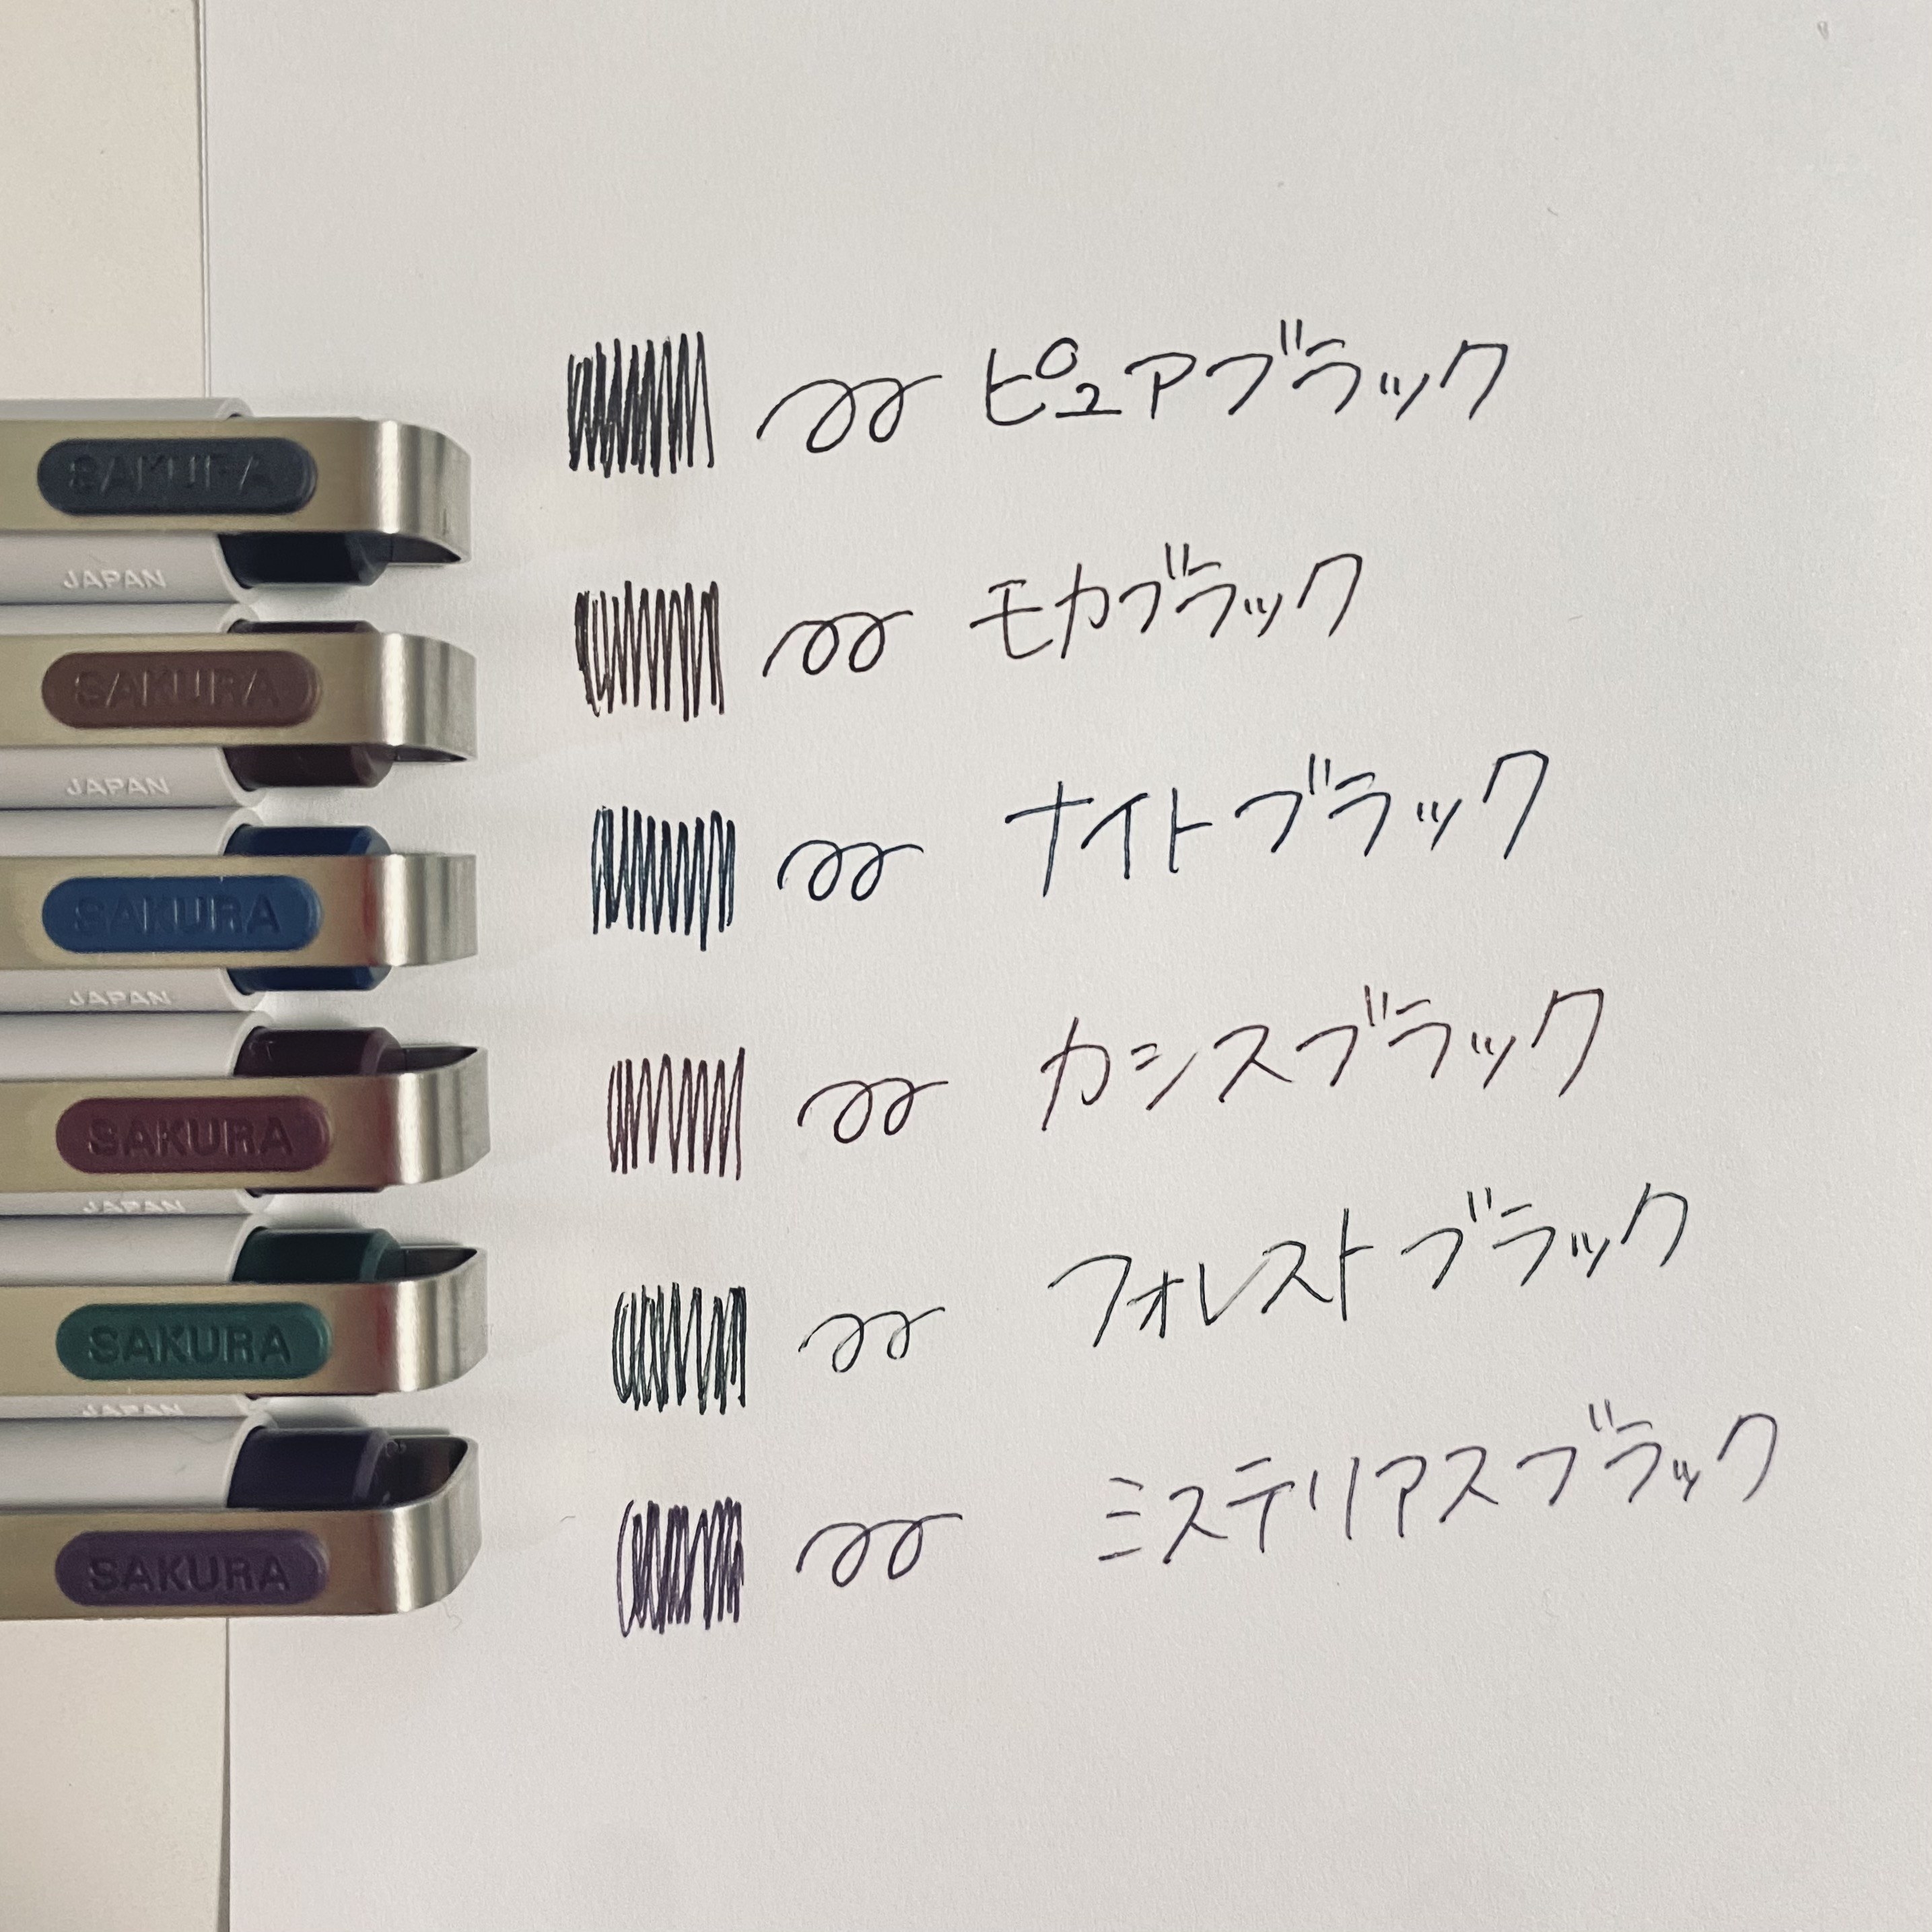 SAKURA
ピュアブラック
JAPAN
SAKURA
モカブラック
JAPAN
SAKURA
ナイトブラック
JAPAN
SAKURA
カシスブラック
JAPAN
SAKURA
フォレストブラック
JAPAN
SAKURA
ミステリアスブラック